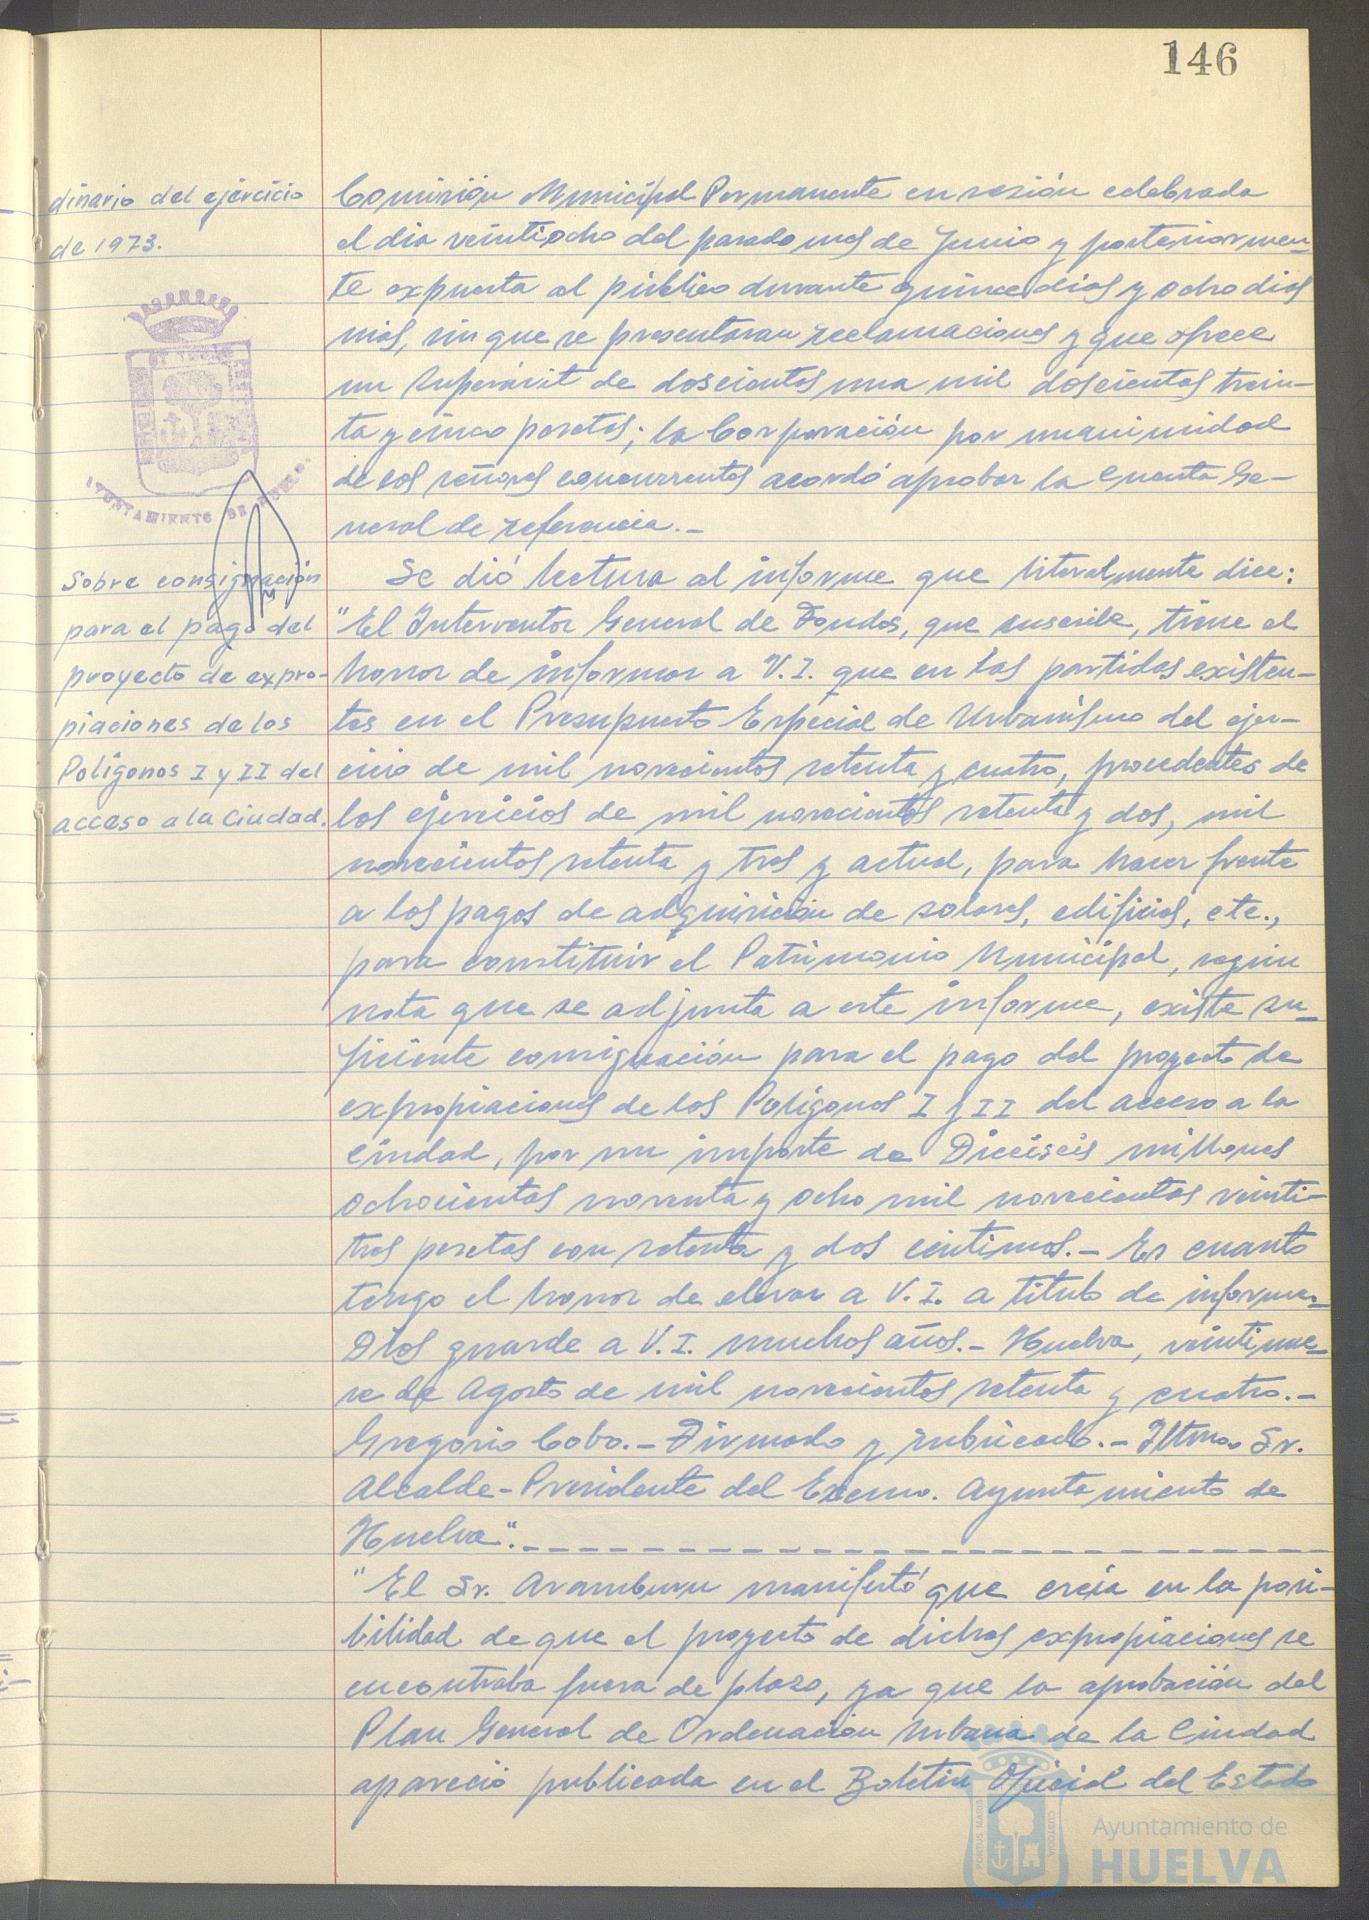 146
dinario del ejercicio
de 1973.
Comisión Municipal Permanente en sesión celebrada
el dia veintiocho del pasado mes de Junio y posteriormen-
te expuesta al público durante quince dias y ocho dias
mas, sin que se presentaran reclamaciones y que ofrece
un superávit de doscientas una mil doscientas trein-
ta y cinco pesetas; la Corporación por unanimidad
de los señores concurrentes acordó aprobar la Cuenta Ge-
neral de referencia.-
AYUNTAMIENTO DE HUELVA
Sobre consignación
para el pago del
proyecto de expro-
piaciones de los
Polígonos I y II del
acceso a la Ciudad.
Se dió lectura al informe que literalmente dice:
"El Interventor General de Fondos, que suscribe, tiene el
honor de informar a V.I. que en las partidas existen-
tes en el Presupuesto Especial de Urbanismo del ejer-
cicio de mil novecientos setenta y cuatro, procedentes de
los ejercicios de mil novecientos setenta y dos, mil
novecientos setenta y tres y actual, para hacer frente
a los pagos de adquisición de solares, edificios, etc.,
para constituir el Patrimonio Municipal, según
nota que se adjunta a este informe, existe su-
ficiente consignación para el pago del proyecto de
expropiaciones de los Polígonos I y II del acceso a la
Ciudad, por un importe de Dieciseis millones
ochocientas noventa y ocho mil novecientas veinti-
tres pesetas con setenta y dos centimos.- Es cuanto
tengo el honor de elevar a V.I. a titulo de informe.-
Dios guarde a V.I. muchos años.- Huelva, veintinue-
ve de Agosto de mil novecientos setenta y cuatro.-
Gregorio Cobo.- Firmado y rubricado.- Iltmo. Sr.
Alcalde-Presidente del Excmo. Ayuntamiento de
Huelva".-
"El Sr. Aramburu manifestó que creía en la posi-
bilidad de que el proyecto de dichas expropiaciones se
encontraba fuera de plazo, ya que la aprobación del
Plan General de Ordenación Urbana de la Ciudad
apareció publicada en el Boletin Oficial del Estado
PORTUS MARIS CUSTODIA
Ayuntamiento de
HUELVA